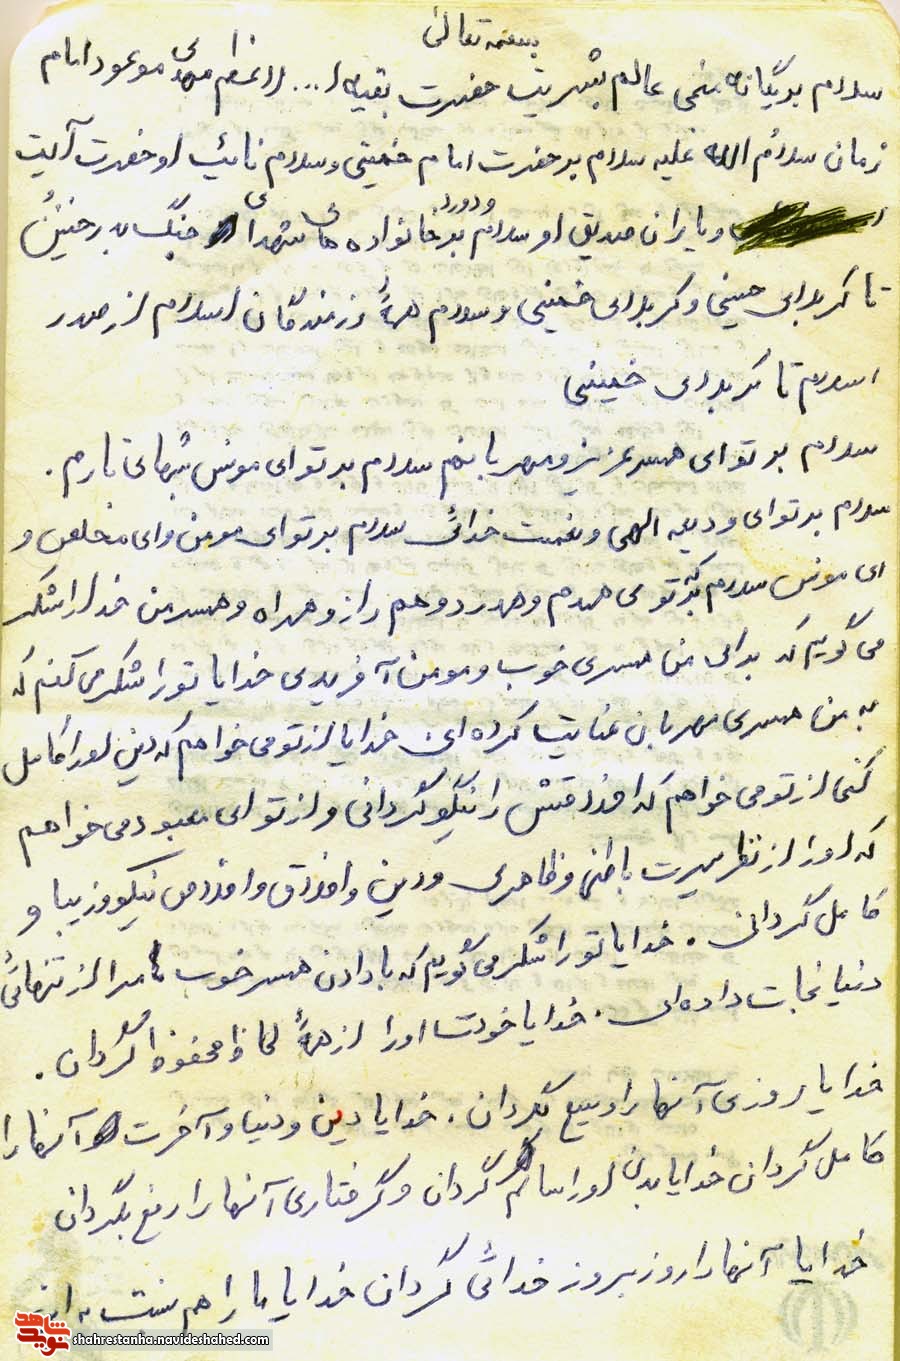 بسمه تعالی
سلام بر یگانه منجی عالم بشریت حضرت بقیه ا... الاعظم مهدی موعود امام
زمان سلام الله علیه سلام بر حضرت امام خمینی و سلام نائب او حضرت آیت
و یاران صدیق او سلام و درود بر خانواده های شهدای جنگ بدر حنین
تا کربلای حسینی و کربلای خمینی و سلام همهٔ رزمندگان اسلام از صدر
اسلام تا کربلای خمینی
سلام بر تو ای همسر عزیز و مهربانم سلام بر تو ای مونس شبهای تارم .
سلام بر تو ای ودیعه الهی و نعمت خدائی سلام بر تو ای مومن و ای مخلص و
ای مونس سلام بر تو که تو می همدم و همدرد و هم راز و همراه و همسر من خدا را شکر
می گویم که برای من همسری خوب و مومن آفریدی خدایا تو را شکر می کنم که
به من همسری مهربان عنایت کرده ای خدایا از تو می خواهم که دین او را کامل
کنی از تو می خواهم که اخلاقش را نیکو گردانی و از تو ای معبود می خواهم
که او را از نظر سیرت باطنی و ظاهری و دین و اخلاق و اخلاص نیکو و زیبا و
کامل گردانی . خدایا تو را شکر می گویم که با دادن همسر خوب مرا از تنهائی
دنیا نجات داده ای . خدایا خودت او را از همهٔ لحاظ محفوظ گردان .
خدایا روزی آنها را وسیع بگردان . خدایا دین و دنیا و آخرت آنها را
کامل گردان خدایا بدن او را سالم گردان و گرفتاری آنها را رفع بگردان
خدایا آنها را روز بروز خدائی گردان خدایا ما را هم نسبت به
شاهد
نوید
shahrestanha.navideshahed.com